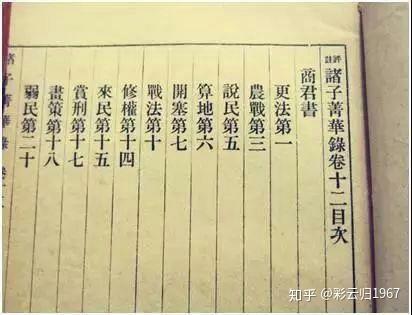 評註諸子菁華錄卷十二目次
商君書
更法第一
農戰第三
說民第五
算地第六
開塞第七
戰法第十
修權第十四
來民第十五
賞刑第十七
畫策第十八
弱民第二十
諸子菁華錄
知乎 @彩云归1967